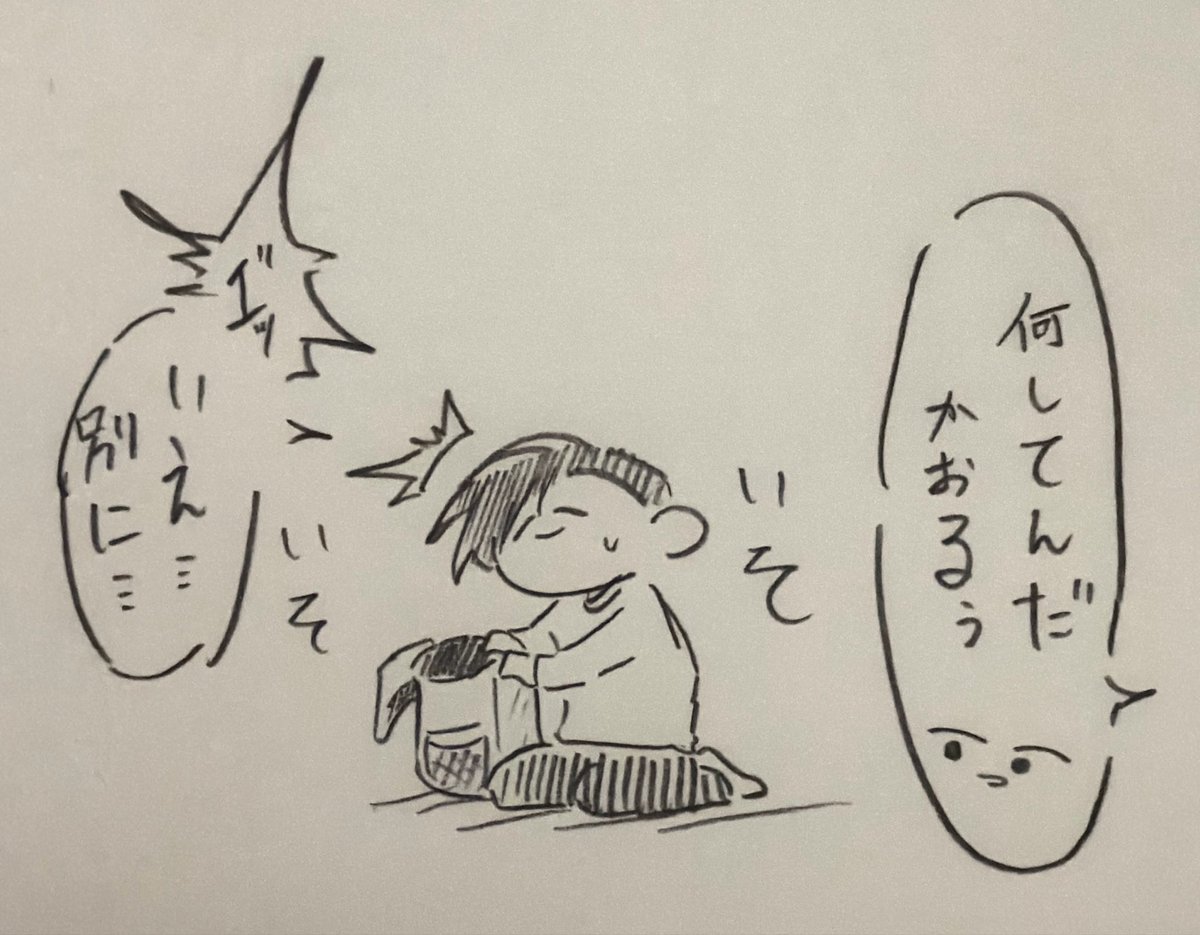 何してんだ
かおるぅ
いそ
いそ
ゲッ
いえ…
別に…